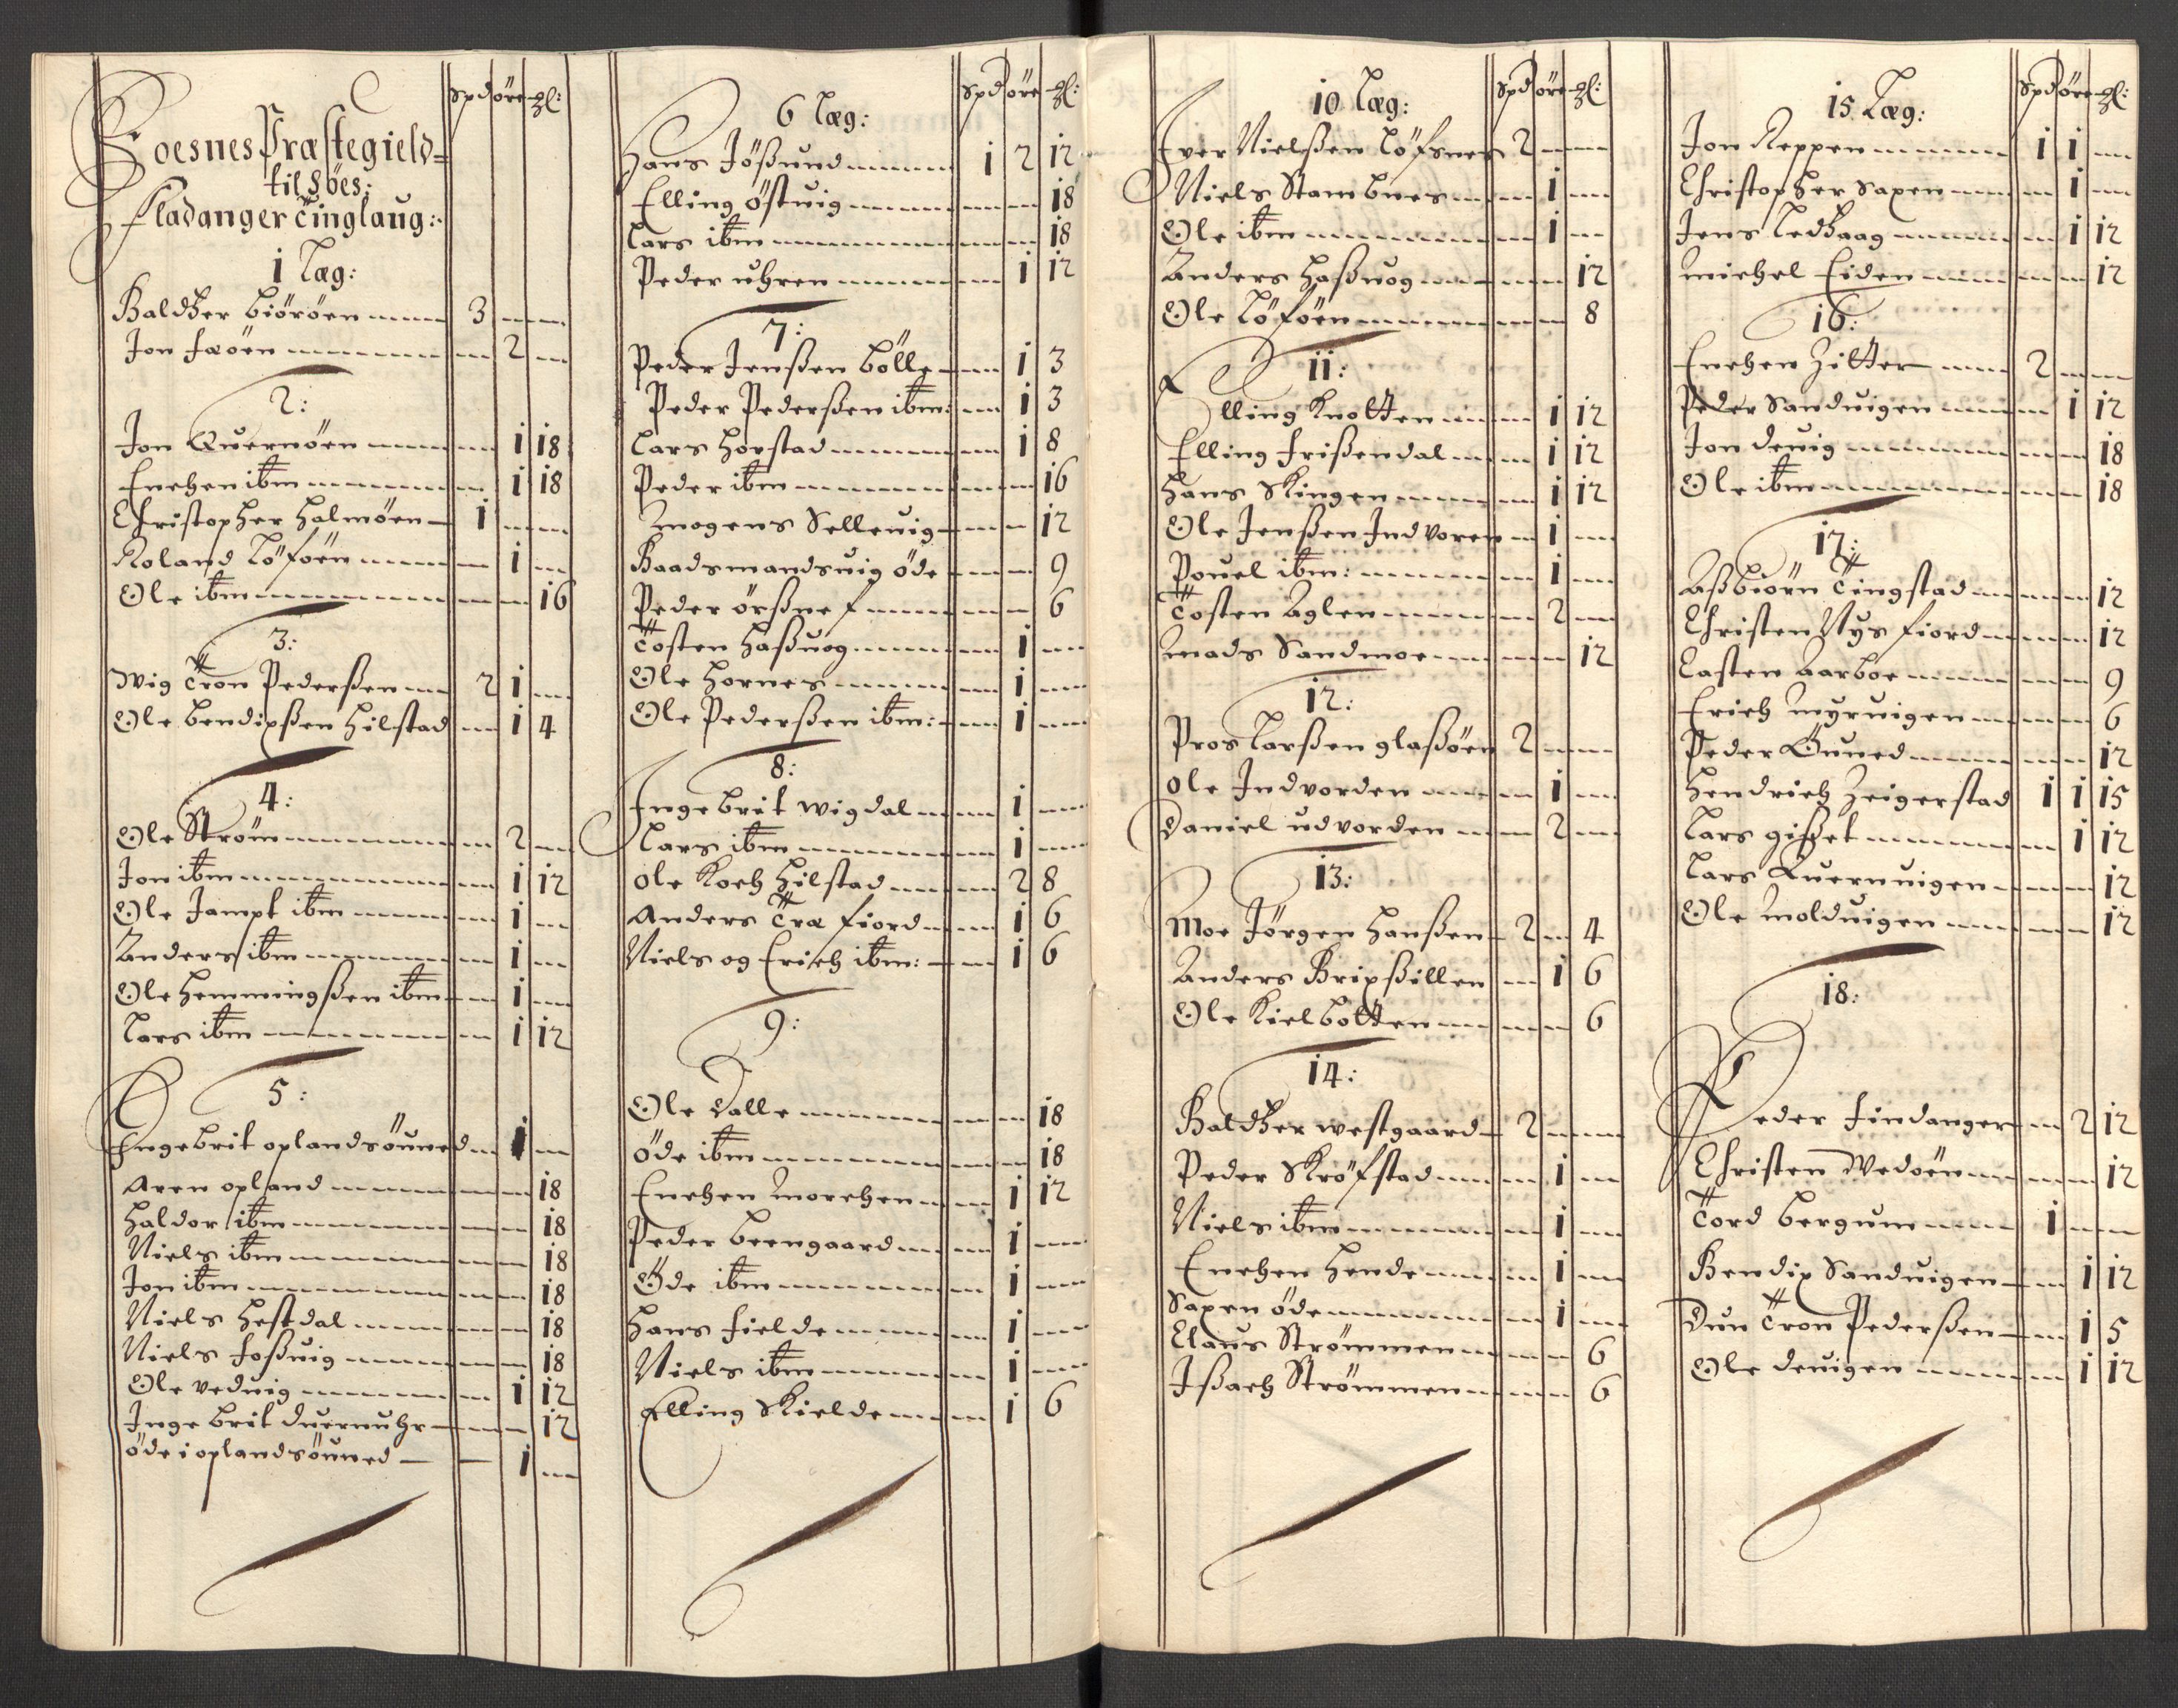 Spd øre ₰l:
Foesnes Præstegield=
til Söes:
Fladanger Tinglaug:
1 Læg:
Baldtzer Biöröen 3
Jon Faöen 2
2:
Jon Quernöen 1 18
Enchen ibm 1 18
Christopher Halmöen 1
Roland Löföen 1
Ole ibm 16
3:
Wig Tron Pederßen 2 1
Ole Bendixßen Hilstad 1 4
4:
Ole Ström 2
Jon ibm 1 12
Ole Jampt ibm 1
Anders ibm 1
Ole Hemmingßen ibm 1
Lars ibm 1 12
5:
Engebrit oplandsöuned 1
Aren opland 18
Haldor ibm 18
Niels ibm 18
Jon ibm 18
Niels Hestdal 18
Niels Foßuig 18
Ole veduig 1 12
Ingebrit Duernuhr 12
öde i oplandsöuned 1
Spd øre ₰l:
6 Læg:
Hans Jößund 1 2 12
Elling Östuig 18
Lars ibm 18
Peder Uhren 1 12
7:
Peder Jenßen Bölle 1 3
Peder Pederßen ibm: 1 3
Lars Horstad 1 8
Peder ibm 16
Mogens Selleuig 12
Baadsmandsuig öde 9
Peder örßnef 6
Tosten Haßuog 1
Ole Hornes 1
Ole Pederßen ibm: 1
8:
Ingebrit Wigdal 1
Lars ibm 1
Ole Koch Hilstad 2 8
Anders Træfiord 1 6
Niels og Erich ibm: 1 6
9:
Ole Dalle 18
öde ibm 18
Enchen Morchen 1 12
Peder Beengaard 1
Öde ibm 1
Hans Fielde 1
Niels ibm 1
Elling Skielde 1 6
Spd øre ₰l:
10 Læg:
Iver Nielßen Löfsnes 2
Niels Stambnes 1
Ole ibm 1
Anders Haßuog 12
Ole Löföen 8
11:
Elling Knotten 1 12
Elling Frißendal 1 12
Hans Skingen 1 12
Ole Jenßen Indvoren 1
Pouel ibm: 1
Tosten Aglen 2
Mads Sandmoe 12
12:
Pros Larßen glaßöen 2
Ole Indvorden 1
Daniel udvorden 2
13:
Moe Jörgen Hanßen 2 4
Anders Brixßillen 1 6
Ole Kielbotten 6
14:
Baldtzer Westgaard 2
Peder Skröfstad 1
Niels ibm 1
Enchen Hende 1
Saxen öde 1
Claus Strömmen 6
Ißach Strömmen 6
Spd øre ₰l:
15 Læg:
Jon Reppen 1 1
Christopher Saxen 1
Jens Ledhaag 1 12
Michel Eiden 12
16:
Enchen Zitter 2
Peder Sanduigen 1 12
Jon deuig 18
Ole ibm 18
17:
Aßbiörn Tingstad 12
Christen Nysfiord 12
Casten Aarboe 9
Erich Myruigen 6
Peder Öuned 12
Hendrich Zeigerstad 1 1 15
Lars gißet 1 12
Lars Quernuigen 12
Ole Molduigen 12
18:
Peder Findanger 2 12
Christen Wedöen 12
Tord Bergum 1
Bendix Sanduigen 1 12
Dun Tron Pederßen 1 5
Ole deuigen 1 12